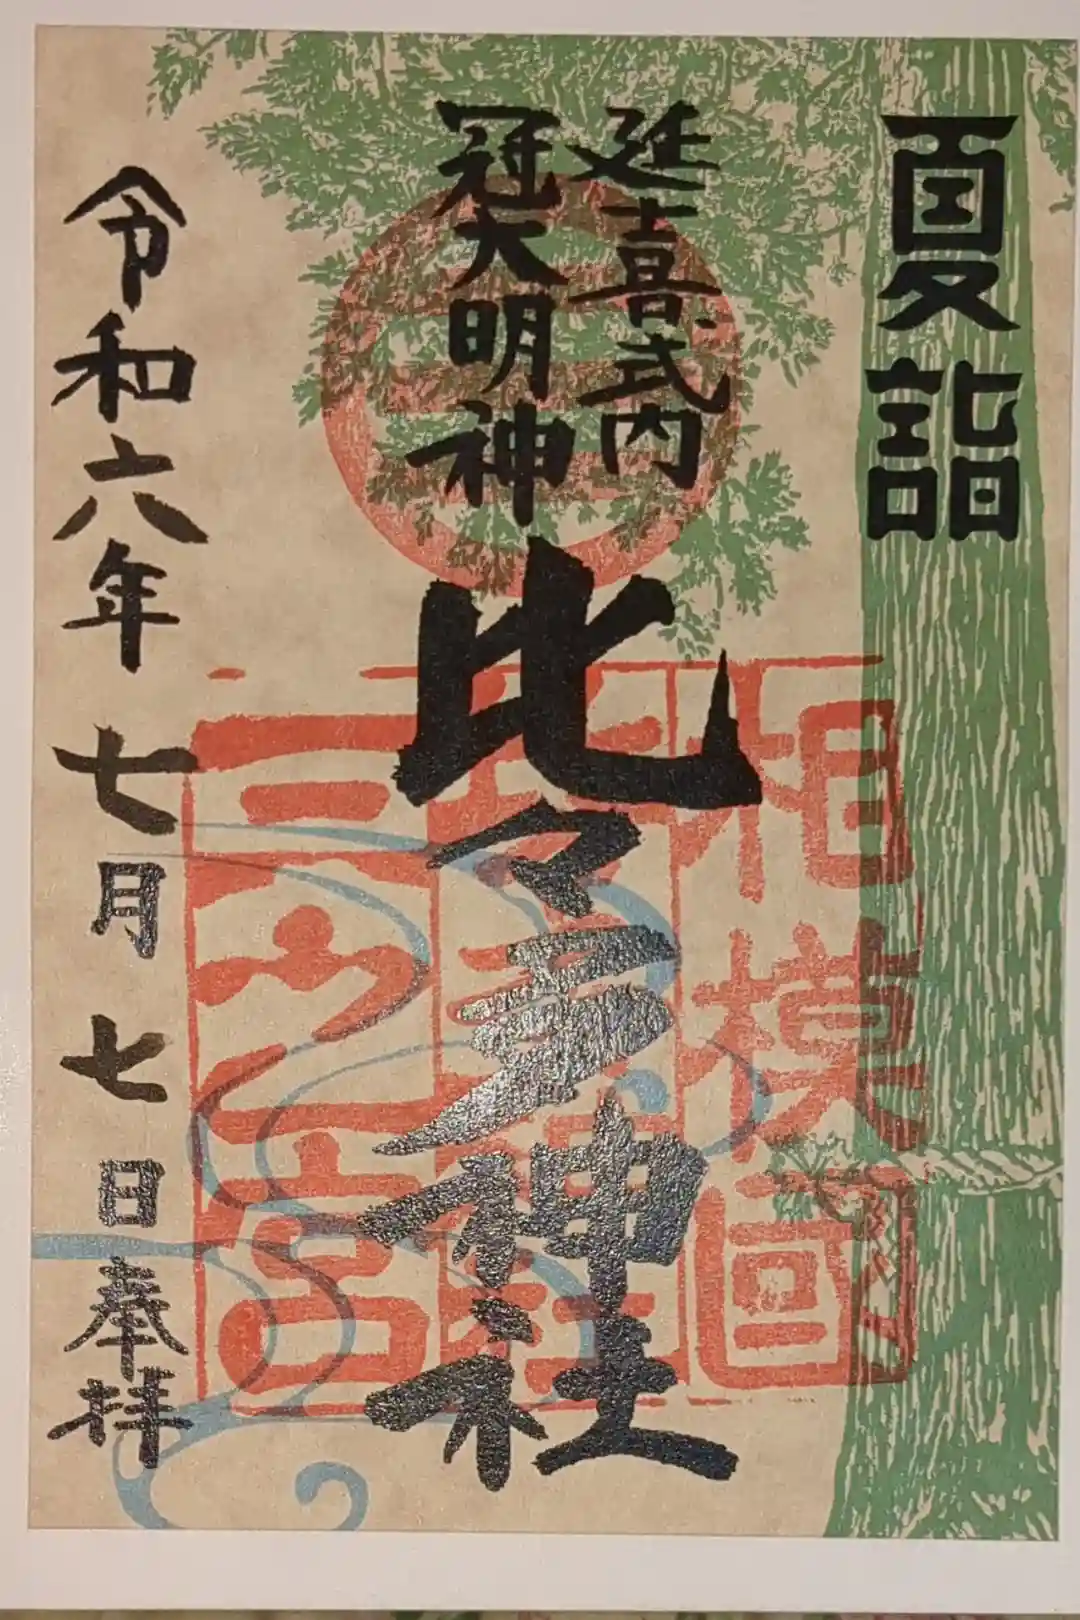 夏詣
延喜式内
冠大明神
比々多神社
相模國
三之宮
令和六年 七月 七日 奉拝